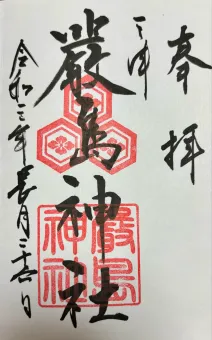 奉拝
三津
嚴島神社
嚴島
神社
令和三年長月二十六日